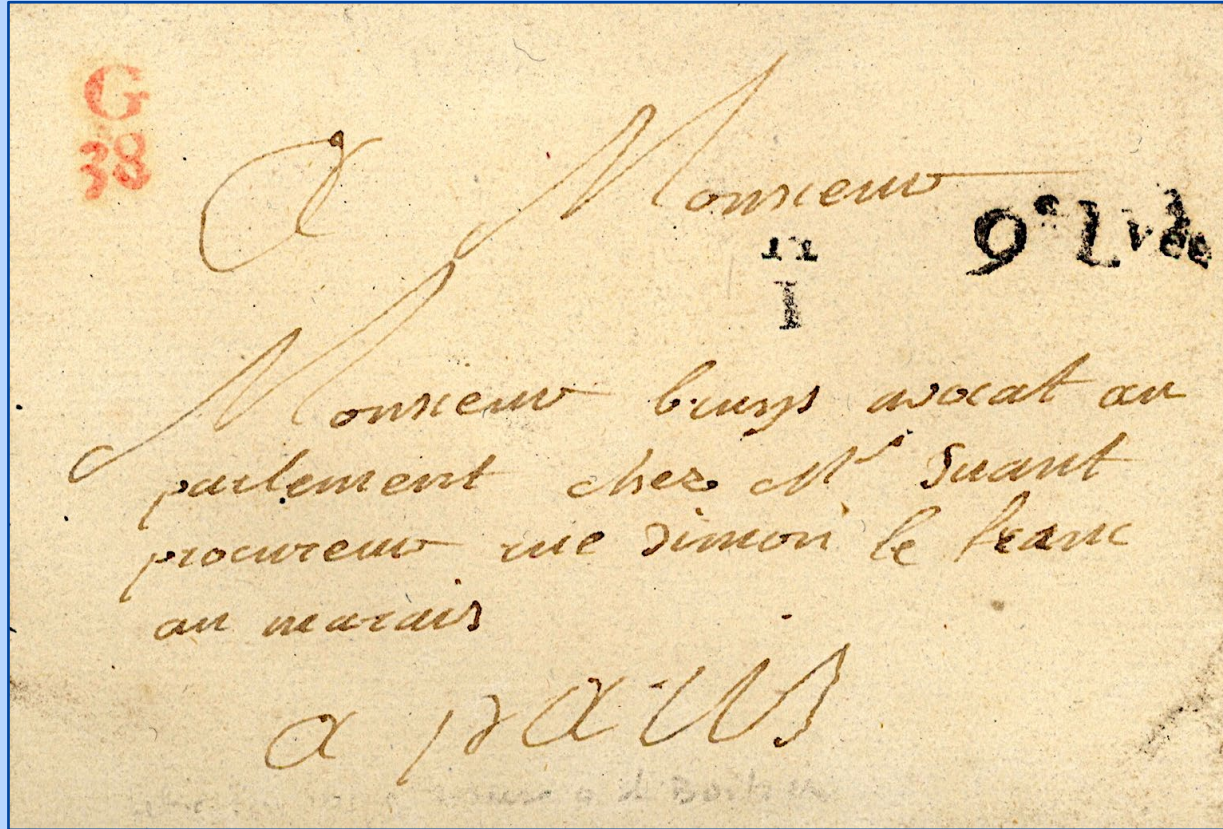 G
38
A Monsieur
9e Lvée
11
1
Monsieur bruys avocat au
parlement chez Mr Suant
procureur rue Simon le franc
au marais
a paris